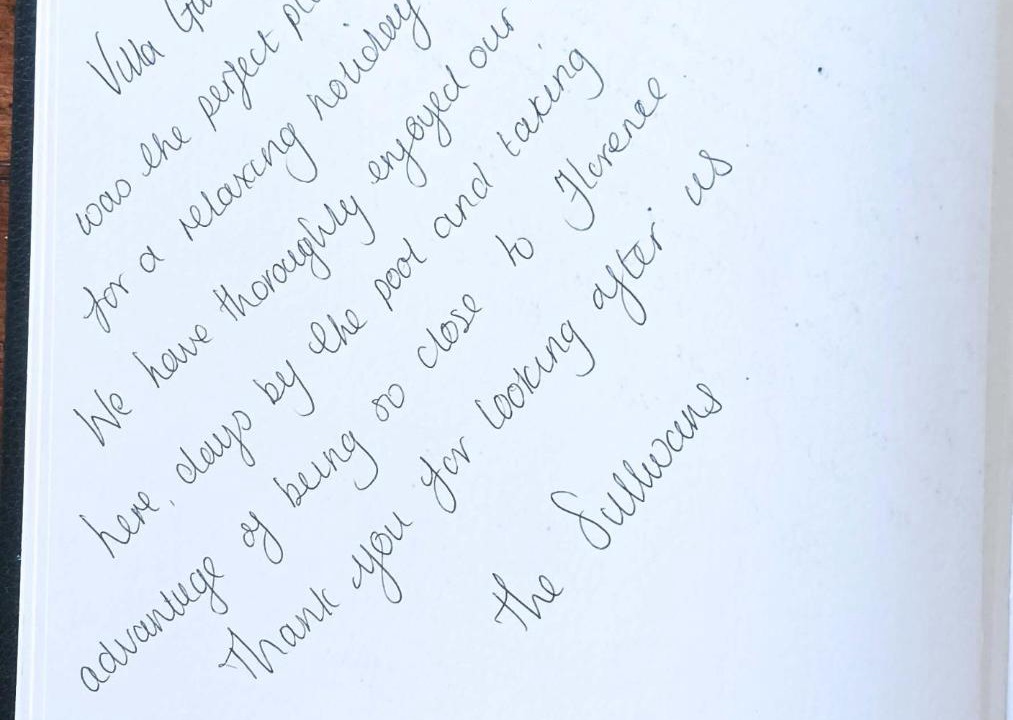 Villa
was the perfect
for a relaxing holiday
We have thoroughly enjoyed our
here, days by the pool and taking
advantage of being so close to Florence
Thank you for looking after us
The Sullivans